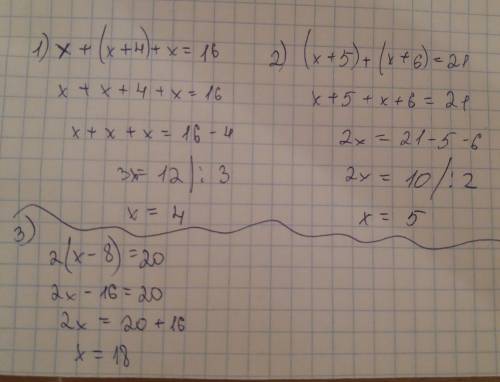 1) x + (x+4) + x = 16
x + x + 4 + x = 16
x + x + x = 16 - 4
3x = 12 /: 3
x = 4
2) (x+5) + (x+6) = 21
x + 5 + x + 6 = 21
2x = 21 - 5 - 6
2x = 10 /: 2
x = 5
3)
2(x - 8) = 20
2x - 16 = 20
2x = 20 + 16
x = 18